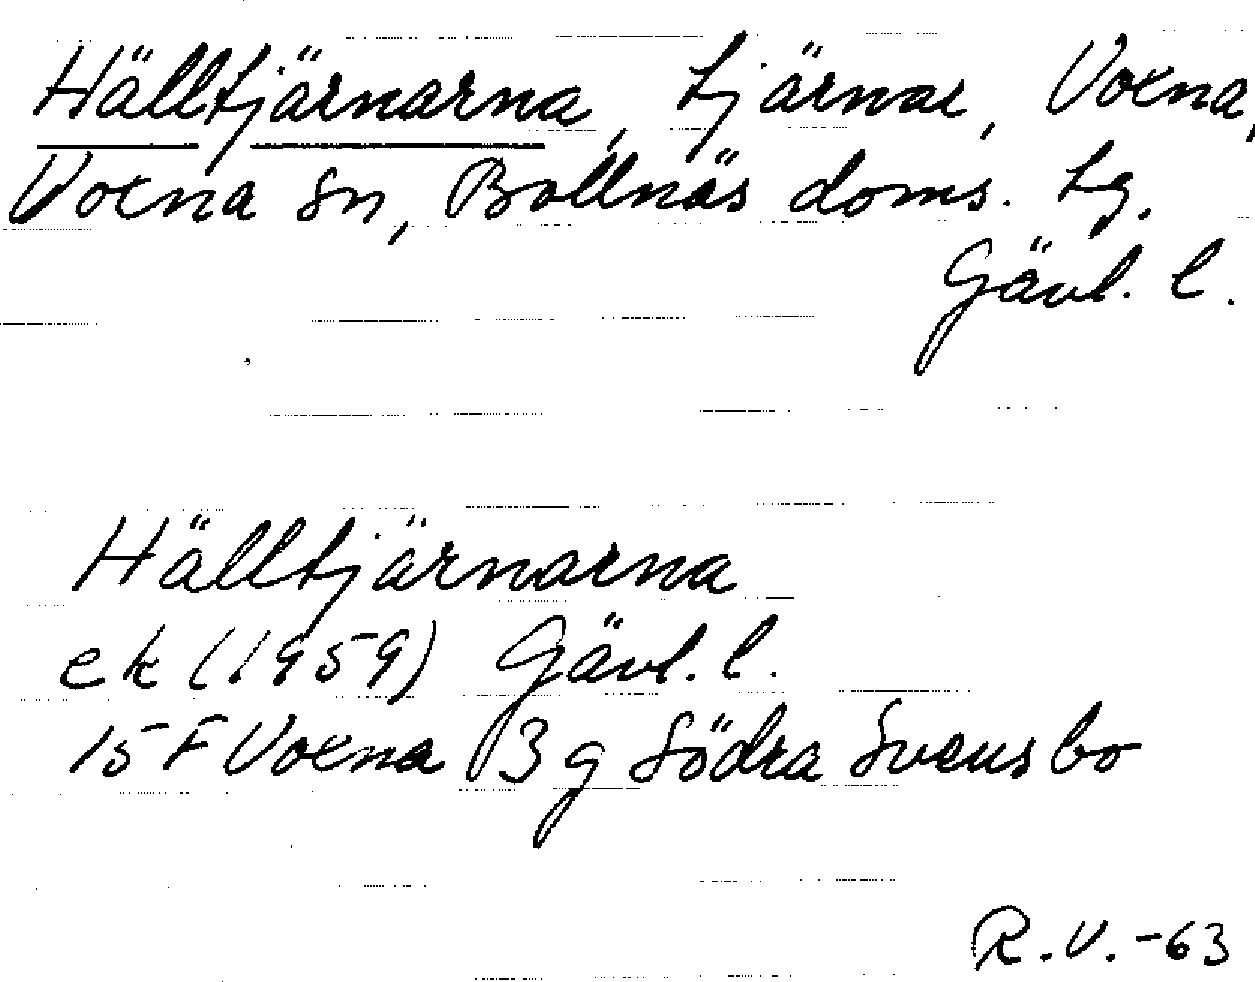 Hälltjärnarna, tjärnar, Voxna,
Voxna sn, Bollnäs doms. tg.
Gävl. l.
Hälltjärnarna
ek (1959) Gävl. l.
15 F Voxna 3 g Södra Svensbo
R.V. -63